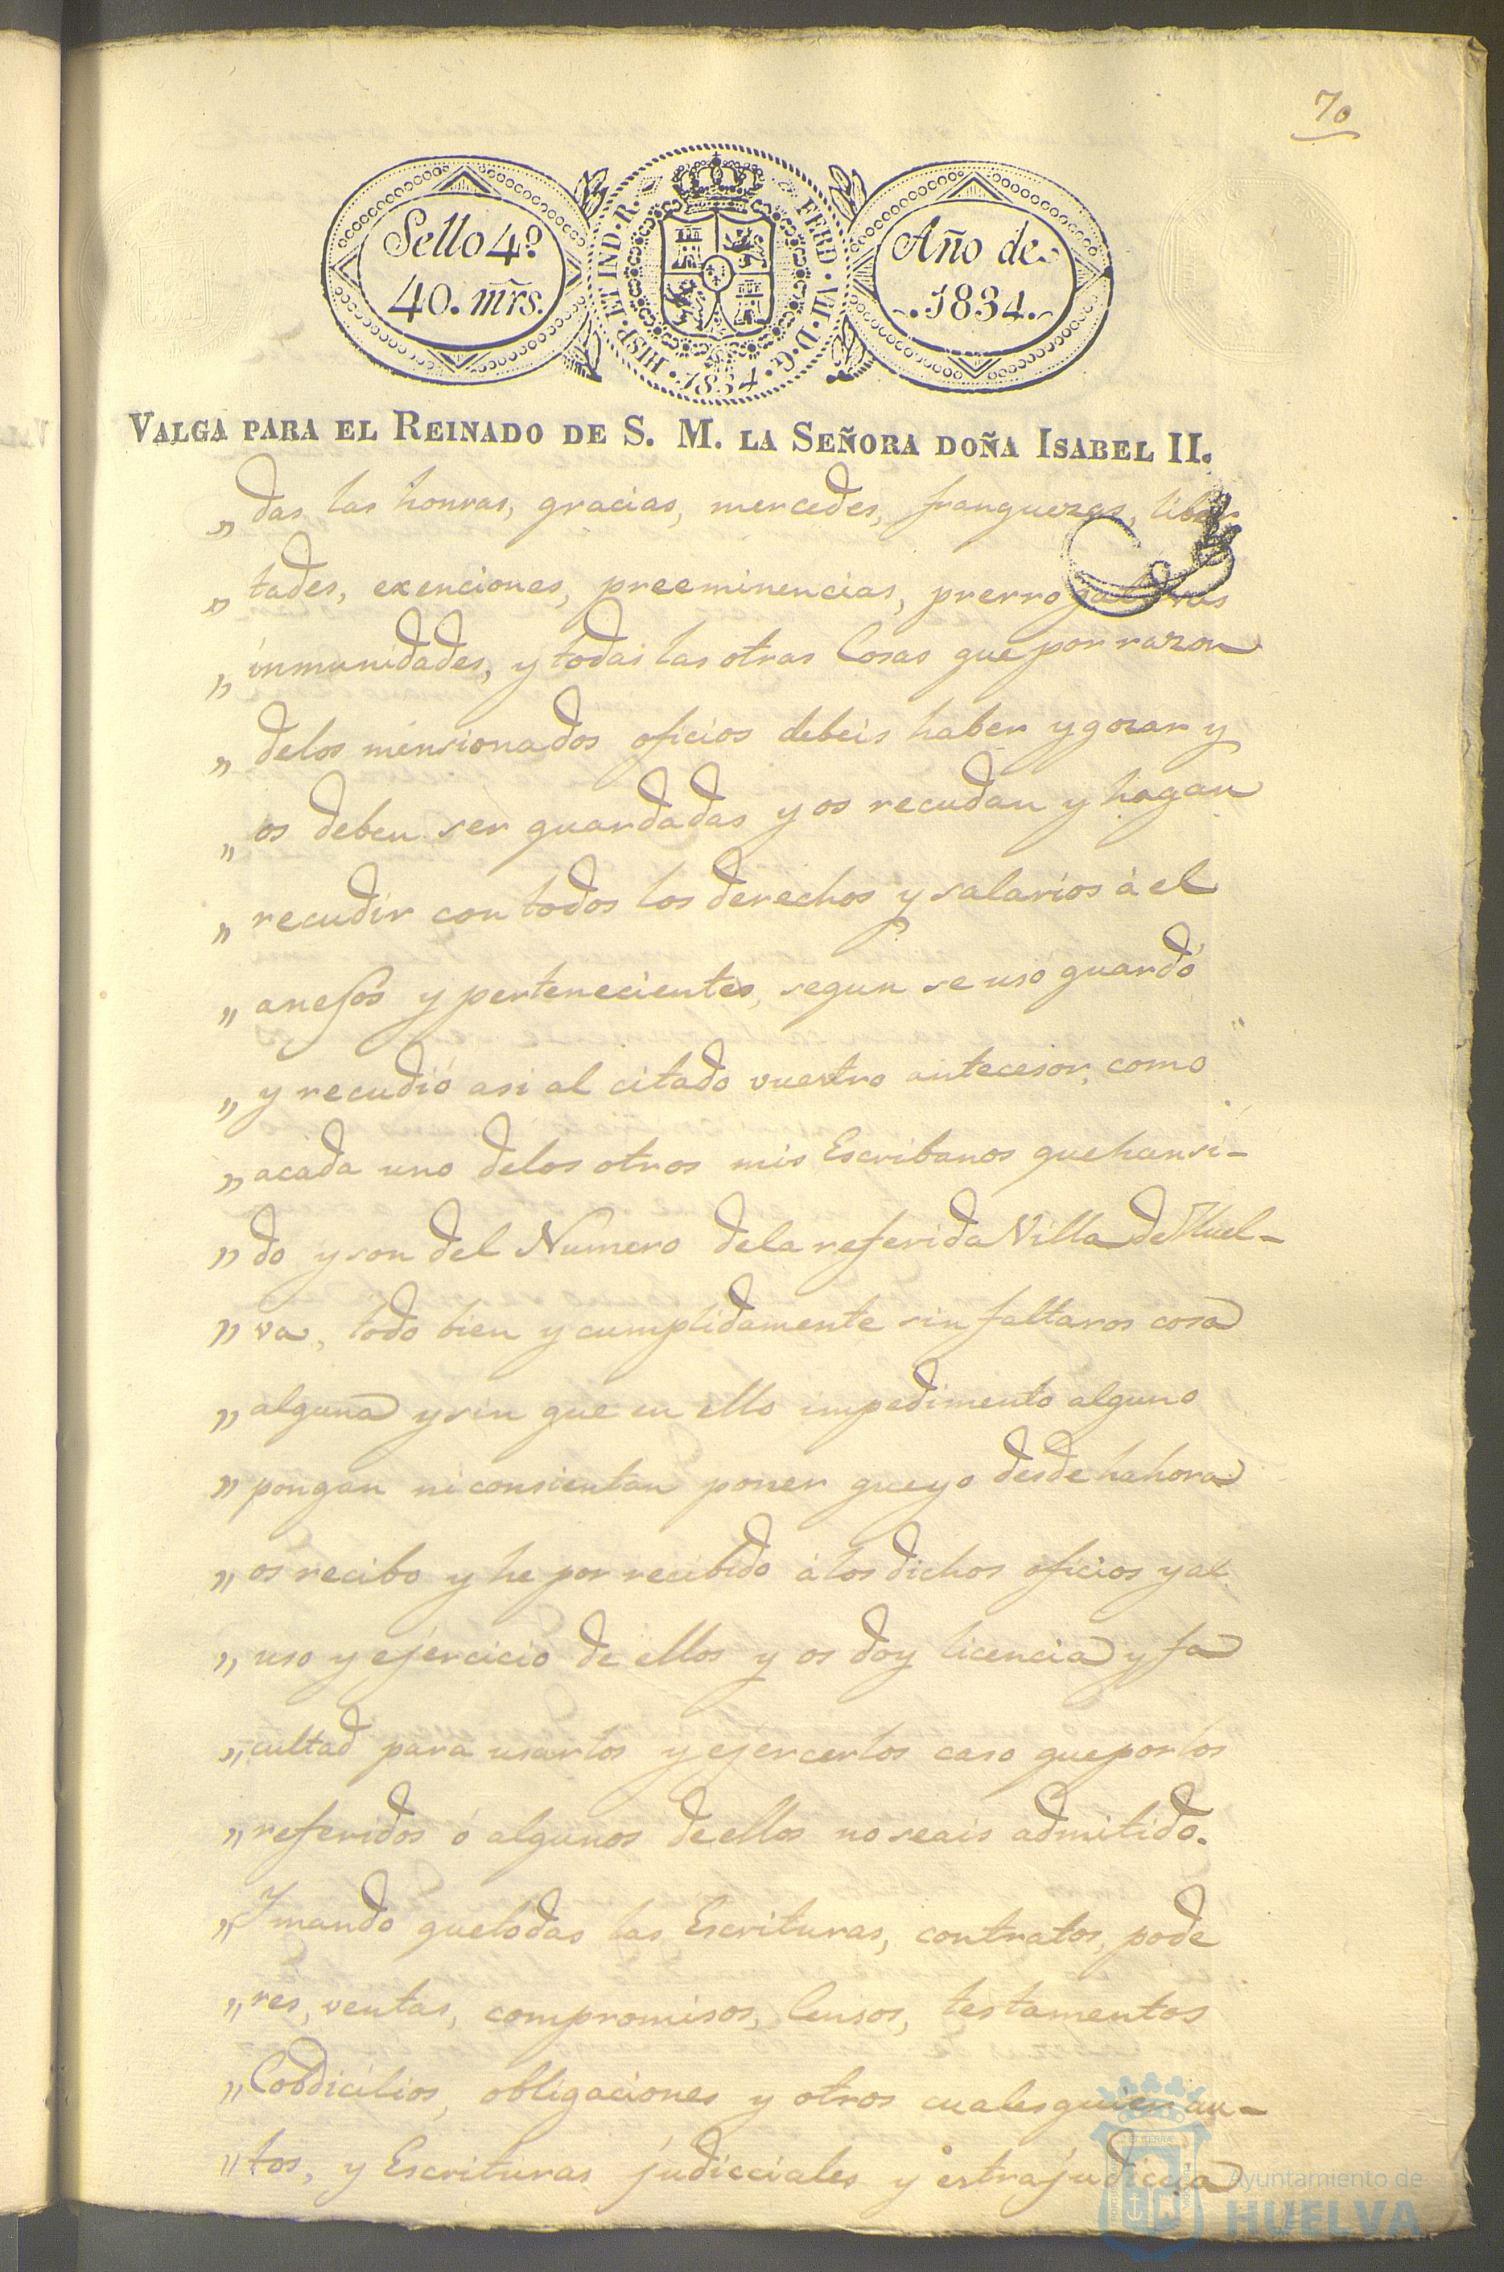 70
Sello 4º
40. mrs.
HISP. ET IND. R.
FERD. VII. D. G.
1834.
Año de
1834.
VALGA PARA EL REINADO DE S. M. LA SEÑORA DOÑA ISABEL II.
" das las honras, gracias, mercedes, franquezas, liber
" tades, exenciones, preeminencias, prerrogativas
" inmunidades, y todas las otras Cosas que por razon
" delos mensionados oficios debeis haber y gozar y
" os deben ser guardadas y os recudan y hagan
" recudir con todos los derechos y salarios á el
" anesos y pertenecientes, segun se usó guardó
" y recudió asi al citado vuestro antecesor, como
" acada uno delos otros mis Escribanos que han si-
" do y son del Numero dela referida Villa de Huel-
" va, todo bien y cumplidamente sin faltaros cosa
" alguna y sin que en ello impedimento alguno
" pongan ni consientan poner que yo desde hahora
" os recibo y he por recibido á los dichos oficios y al
" uso y ejercicio de ellos y os doy licencia y fa
" cultad para usarlos y ejercerlos caso que por los
" referidos ó algunos de ellos no seais admitido.
" Y mando que todas las Escrituras, contratos, pode
" res, ventas, compromisos, Censos, testamentos
" Cobdicilios, obligaciones y otros cualesquier au-
" tos, y Escrituras judicciales y estrajudiccia
Ayuntamiento de
HUELVA